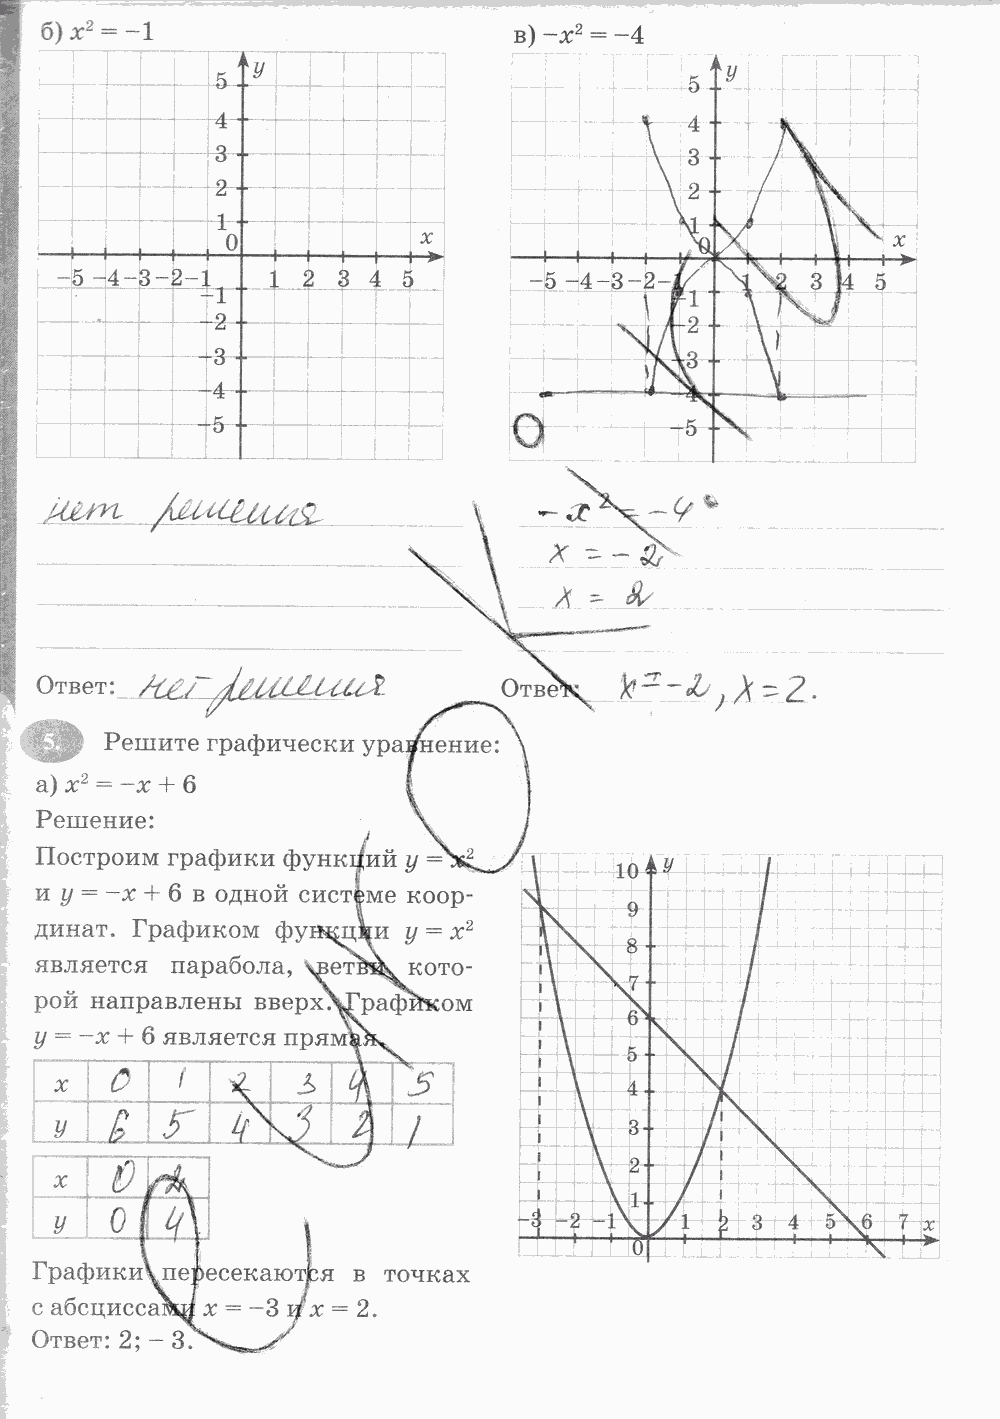 б) x² = −1
в) −x² = −4
y
5
4
3
2
1
0
x
−5 −4 −3 −2 −1 1 2 3 4 5
−1
−2
−3
−4
−5
y
5
4
3
2
1
0
x
−5 −4 −3 −2 −1 1 2 3 4 5
−1
−2
−3
−4
−5
нет решения
− x² = −4
x = −2
x = 2
Ответ: нет решения
Ответ: x = −2, x = 2.
5. Решите графически уравнение:
а) x² = −x + 6
Решение:
Построим графики функций y = x²
и y = −x + 6 в одной системе коор-
динат. Графиком функции y = x²
является парабола, ветви кото-
рой направлены вверх. Графиком
y = −x + 6 является прямая.
x 0 1 2 3 4 5
y 6 5 4 3 2 1
x 0 2
y 0 4
Графики пересекаются в точках
с абсциссами x = −3 и x = 2.
Ответ: 2; − 3.
y
10
9
8
7
6
5
4
3
2
1
−3 −2 −1 1 2 3 4 5 6 7 x
0